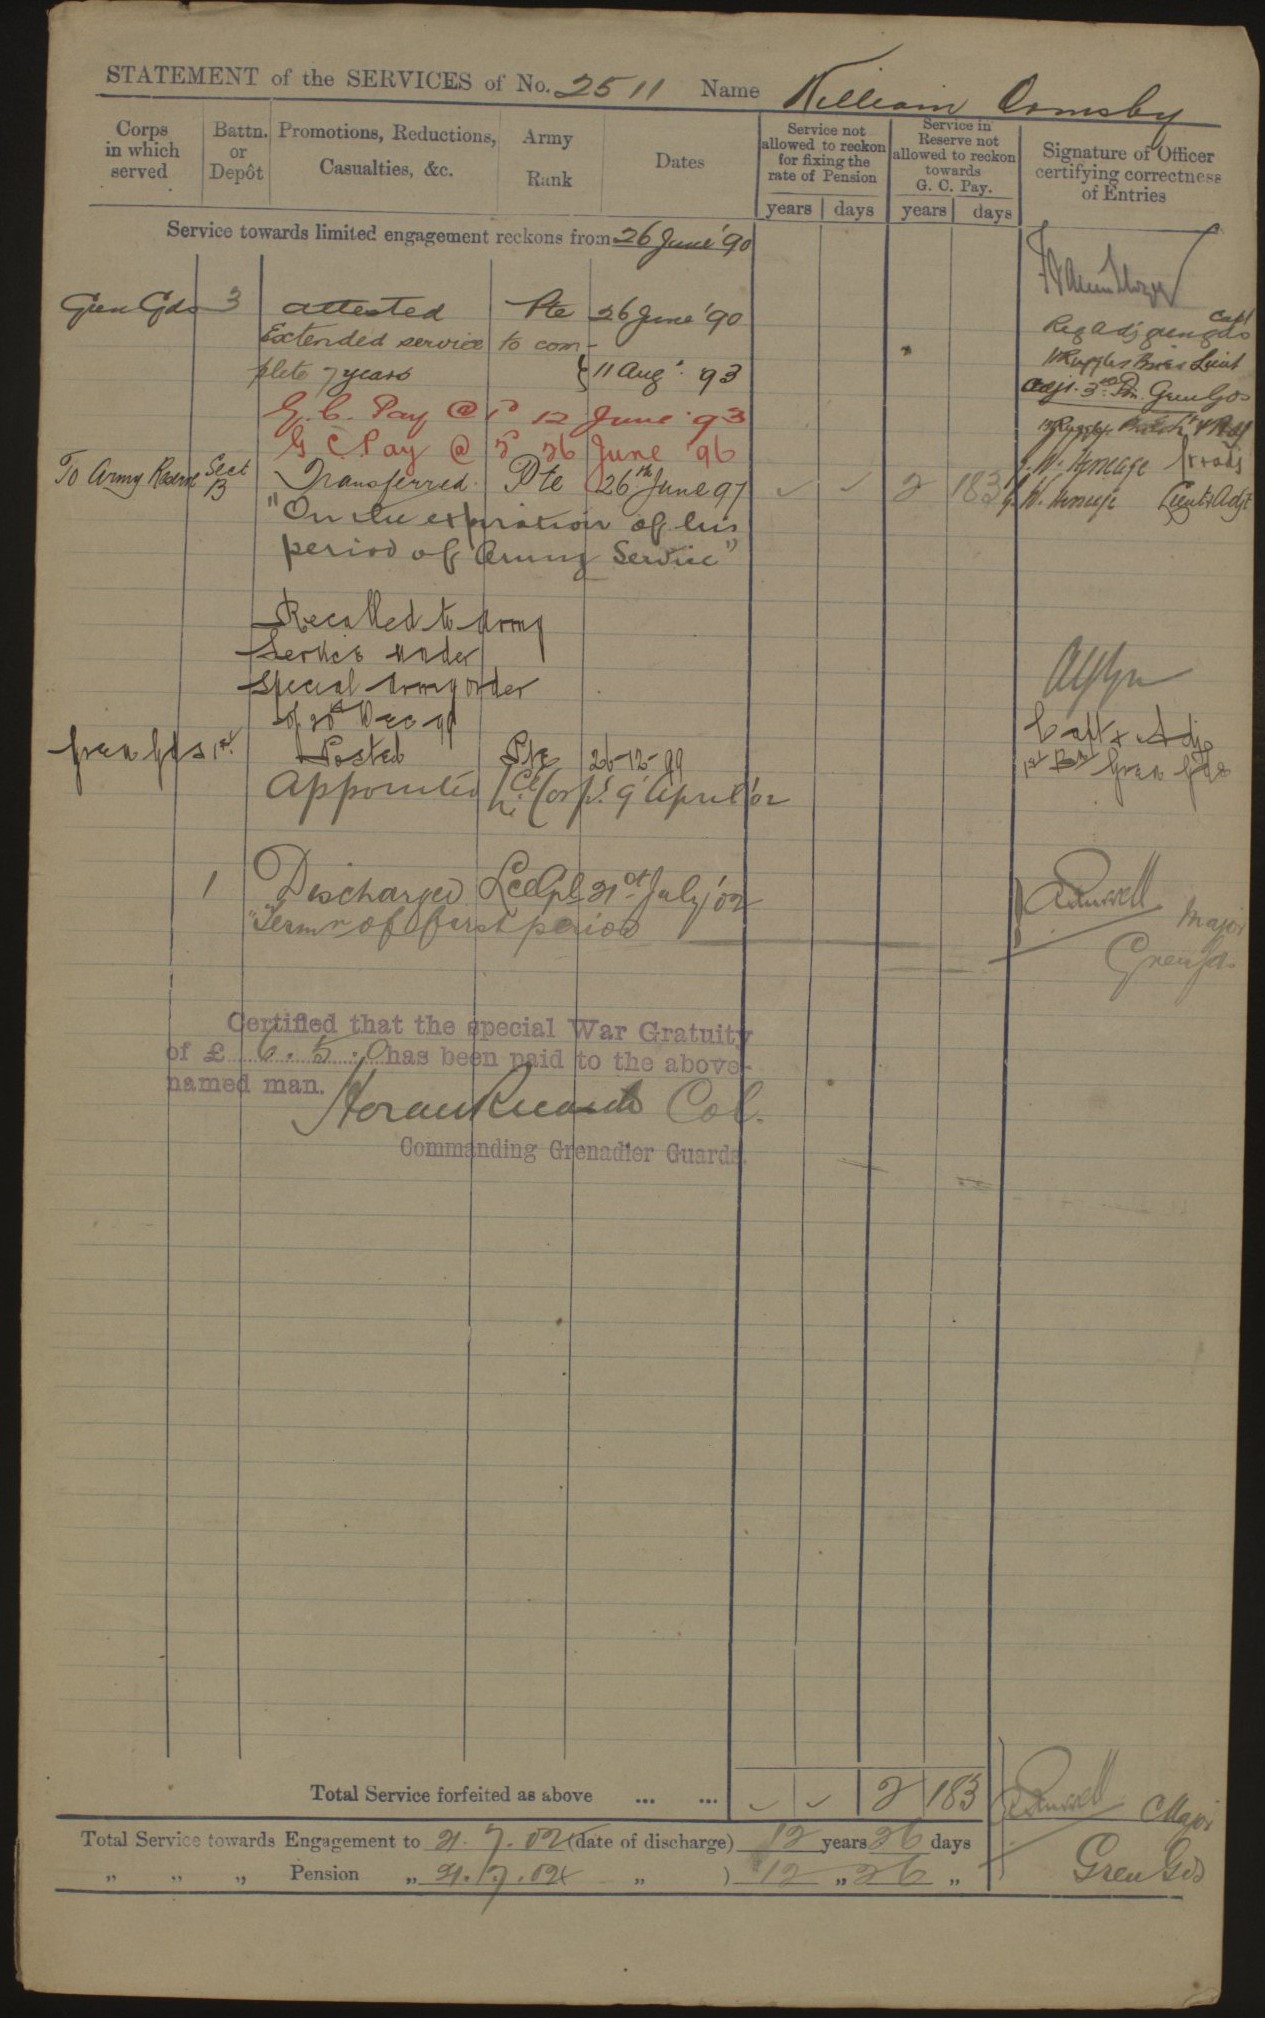 STATEMENT of the SERVICES of No. 2511 Name William Ormsby
Corps in which served
Battn. or Depôt
Promotions, Reductions, Casualties, &c.
Army Rank
Dates
Service not allowed to reckon for fixing the rate of Pension
years days
Service in Reserve not allowed to reckon towards G. C. Pay.
years days
Signature of Officer certifying correctness of Entries
Service towards limited engagement reckons from 26 June '90
Gren Gds 3 attested Pte 26 June '90
Capt
Reg Adj Grengds
Extended service to com-
plete 7 years } 11 Aug. 93
Lieut
Adjt. 3rd Bn. Gren Gds
G. C. Pay @ 1d 12 June 93
G C Pay @ 26 June 96
To Army Reserve Sect B Transferred Pte 26th June 97 ✓ ✓ 2 183 Lieut & Adjt
"On the expiration of his
period of Army Service"
Recalled to Army
Service under
Special Army order
of 20th Dec 99
Gren Gds 1st Posted Pte 26-12-99
Capt & Adj
1st Bn Gren Gds
Appointed L. Ce Corpl. 9 April '02
1 Discharged Lce Cpl 21st July '02
Major
"Termn of first period
Gren Gds
Certified that the special War Gratuity
of £ 6. 5. 0 has been paid to the above-
named man.
Horace Ricardo Col.
Commanding Grenadier Guards.
Total Service forfeited as above ... ... ✓ ✓ 2 183
Major
Total Service towards Engagement to 21. 7. 02 (date of discharge) 12 years 26 days
Gren Gds
" " " Pension " 21. 7. 02 " ) 12 " 26 "